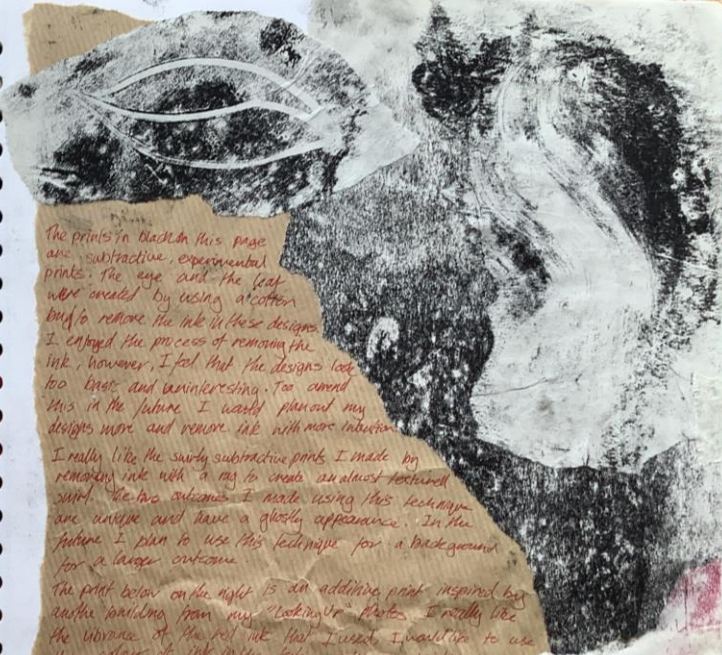 The prints in black on this page
are subtractive, experimental
prints. The eye and the leaf
were created by using a cotton
bud to remove the ink in these designs.
I enjoyed the process of removing the
ink, however, I feel that the designs look
too basic and uninteresting. Too amend
this in the future I would plan out my
designs more and remove ink with more intention
I really like the swirly subtractive prints I made by
removing ink with a rag to create an almost textured
swirl. The two outcomes I made using this technique
are unique and have a ghostly appearance. In the
future I plan to use this technique for a background
for a larger outcome.
The print below on the right is an additive print inspired by
another building from my "Looking Up" photos. I really like
the vibrance of the red ink that I used, I would like to use